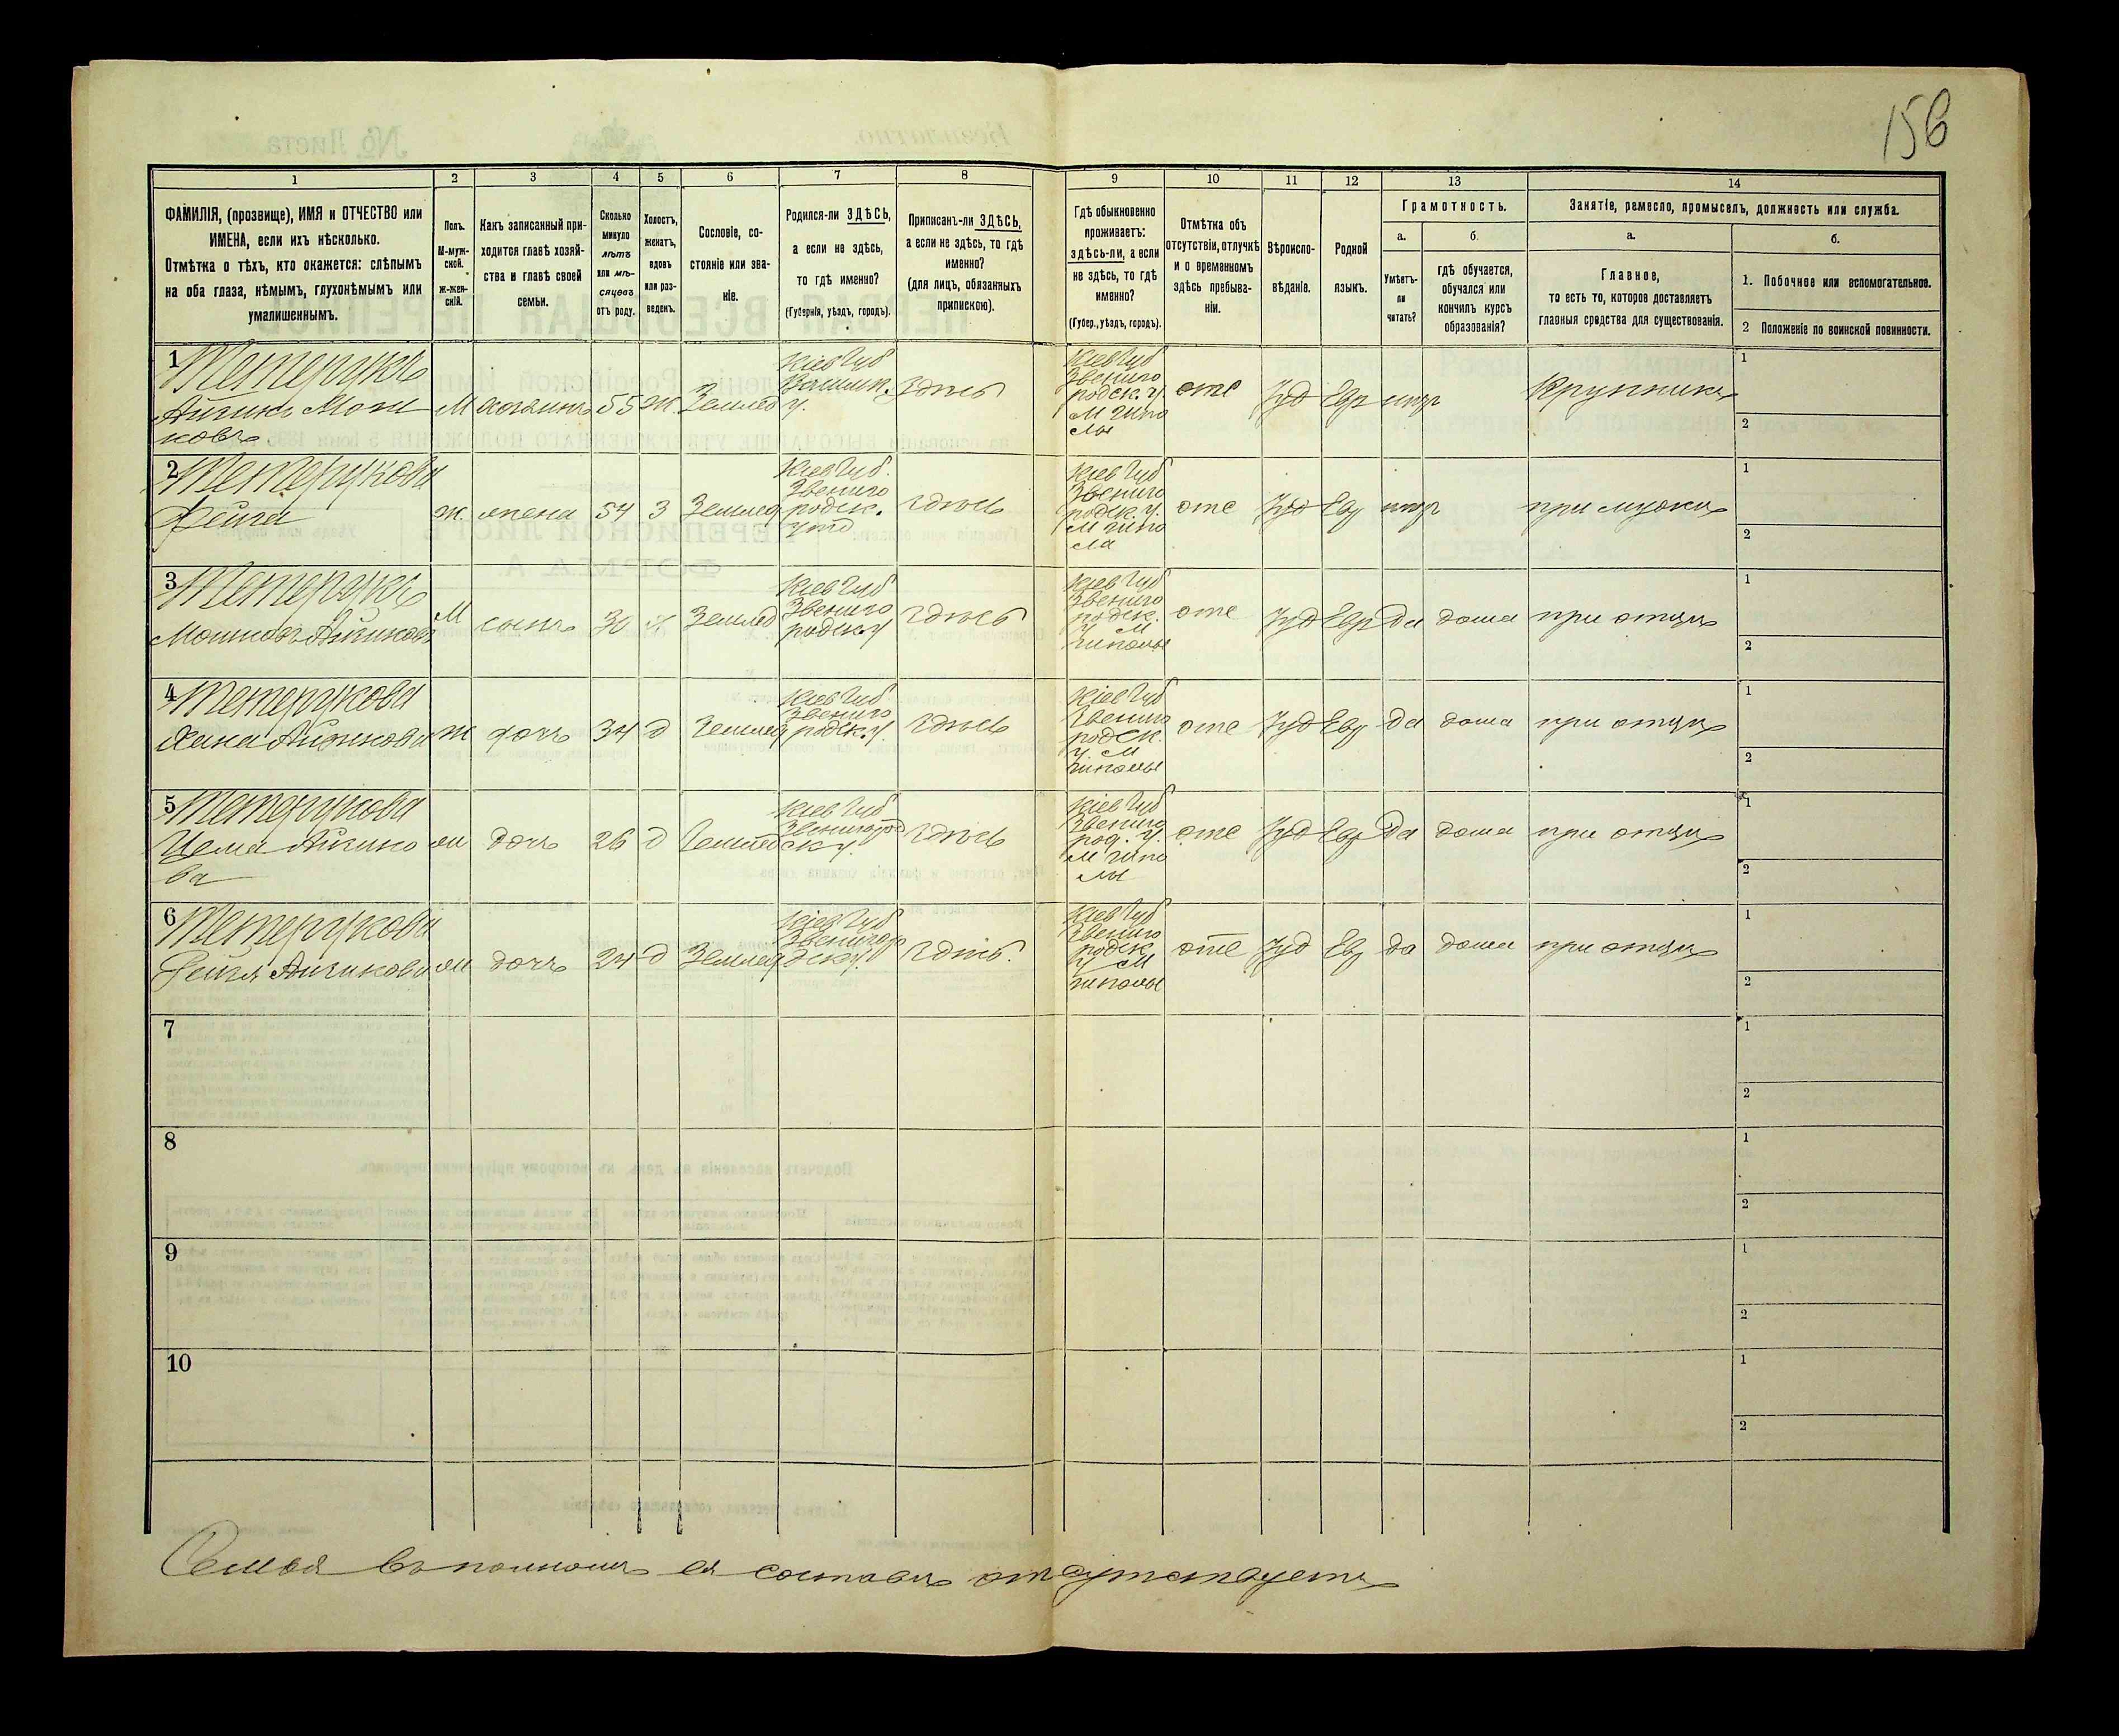 156
1 2 3 4 5 6 7 8 9 10 11 12 13 14
ФАМИЛІЯ, (прозвище), ИМЯ и ОТЧЕСТВО или
ИМЕНА, если ихъ нѣсколько.
Отмѣтка о тѣхъ, кто окажется: слѣпымъ
на оба глаза, нѣмымъ, глухонѣмымъ или
умалишеннымъ.
Полъ.
М-муж-
ской.
ж-жен-
скій.
Какъ записанный при-
ходится главѣ хозяй-
ства и главѣ своей
семьи.
Сколько
минуло
лѣтъ
или мѣ-
сяцевъ
отъ роду.
Холостъ,
женатъ,
вдовъ
или раз-
веденъ.
Сословіе, со-
стояніе или зва-
ніе.
Родился-ли ЗДѢСЬ,
а если не здѣсь,
то гдѣ именно?
(Губернія, уѣздъ, городъ).
Приписанъ-ли ЗДѢСЬ,
а если не здѣсь, то гдѣ
именно?
(для лицъ, обязанныхъ
припискою).
Гдѣ обыкновенно
проживаетъ:
здѣсь-ли, а если
не здѣсь, то гдѣ
именно?
(Губер., уѣздъ, городъ).
Отмѣтка объ
отсутствіи, отлучкѣ
и о временномъ
здѣсь пребыва-
ніи.
Вѣроиспо-
вѣданіе.
Родной
языкъ.
Грамотность.
а.
Умѣетъ-
ли
читать?
б.
гдѣ обучается,
обучался или
кончилъ курсъ
образованія?
Занятіе, ремесло, промыселъ, должность или служба.
а.
Главное,
то есть то, которое доставляетъ
главныя средства для существованія.
б.
1. Побочное или вспомогательное.
2 Положеніе по воинской повинности.
1 Тетерукъ
Айзикъ Мош
ковъ
М
хозяинъ
55
Ж
Землед
Кіев Губ
у.
здѣсь
Кіев Губ
Звениго
родск. у.
М Гипо
лы
отс
Іуд
Евр
Крупникъ
1
2
2 Тетерукова
Фейга
ж.
жена
54
З
Землед
Кіев Губ.
Звениго
родск.
здѣсь
Кіев Губ
Звениго
родск. у.
М Гипо
ла
отс
Іуд
Евр
при мужѣ
1
2
3 Тетерукъ
Мошковъ Айзиковъ
М
сынъ
30
х
Землед
Кіев Губ
Звениго
родск. у
здѣсь
Кіев Губ
Звениго
родск.
у М
Гиполы
отс
Іуд
Евр
Да
дома
при отцѣ
1
2
4 Тетерукова
Хана Айзикова
ж
дочь
34
д
Землед
Кіев Губ
Звениго
родск. у.
здѣсь
Кіев Губ
Звениго
родск.
у М
Гиполы
отс
Іуд
Евр
да
дома
при отцѣ
1
2
5 Тетерукова
Цема Айзико
ва
ж
дочь
26
д
Землед
Кіев Губ
Звенигород
ск у.
здѣсь
Кіев Губ
Звениго
род. у.
М Гипо
лы
отс
Іуд
Евр
Да
дома
при отцѣ
1
2
6 Тетерукова
Рейзя Айзикова
ж
дочь
24
д
Землед
Кіев Губ
Звенигор
дск у.
здѣсь.
Кіев Губ
Звениго
родск
у М
Гиполы
отс
Іуд
Евр
да
дома
при отцѣ
1
2
7
1
2
8
1
2
9
1
2
10
1
2
Семья въ полномъ ея составѣ отсутствуетъ